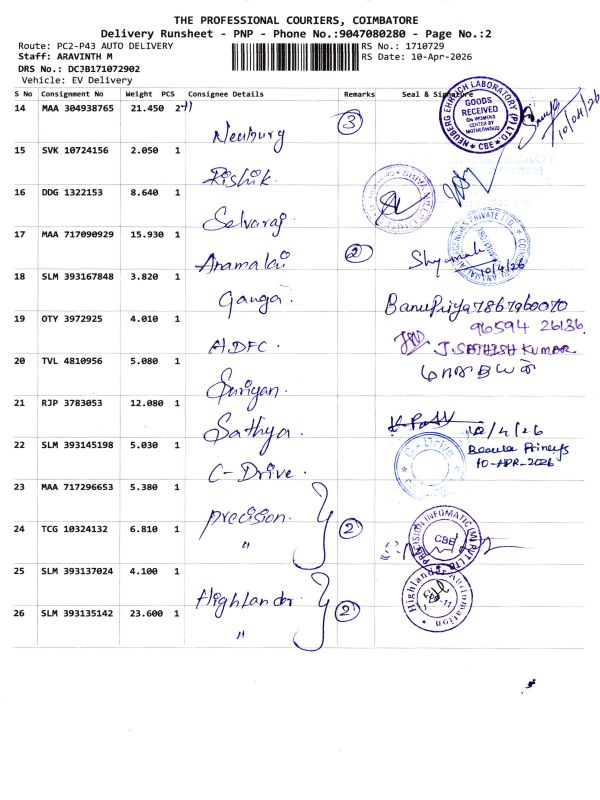 THE PROFESSIONAL COURIERS, COIMBATORE
Delivery Runsheet - PNP - Phone No.:9047080280 - Page No.:2
Route: PC2-P43 AUTO DELIVERY
RS No.: 1710729
Staff: ARAVINTH M
RS Date: 10-Apr-2026
DRS No.: DCJB171072902
Vehicle: EV Delivery
S No Consignment No Weight PCS Consignee Details Remarks Seal & Signature
14 MAA 304938765 21.450 2 Neuburg 3
NEUBERG EHRLICH LABORATORY (P) LTD GOODS RECEIVED ON WOMENS CENTER BY MOTHERHOOD CBE 10/04/26
15 SVK 10724156 2.050 1 Rishik.
16 DDG 1322153 8.640 1 Selvaraj
17 MAA 717090929 15.930 1 Anamalai 2
10/4/26
18 SLM 393167848 3.820 1 Ganga. BanuPriya 7867960070
19 OTY 3972925 4.010 1 ADFC. 96594 26136
J.SATHISH KUMAR
20 TVL 4810956 5.080 1 Suriyan.
21 RJP 3783053 12.080 1 Sathya. 10/4/26
22 SLM 393145198 5.030 1 C-Drive. C-Drive
10-APR-2026
23 MAA 717296653 5.380 1 precision.
24 TCG 10324132 6.810 1 " 2
PRECISION INFOMATIC (M) PVT LTD CBE
25 SLM 393137024 4.100 1 Highlander.
Highlander Automation
26 SLM 393135142 23.600 1 " 2